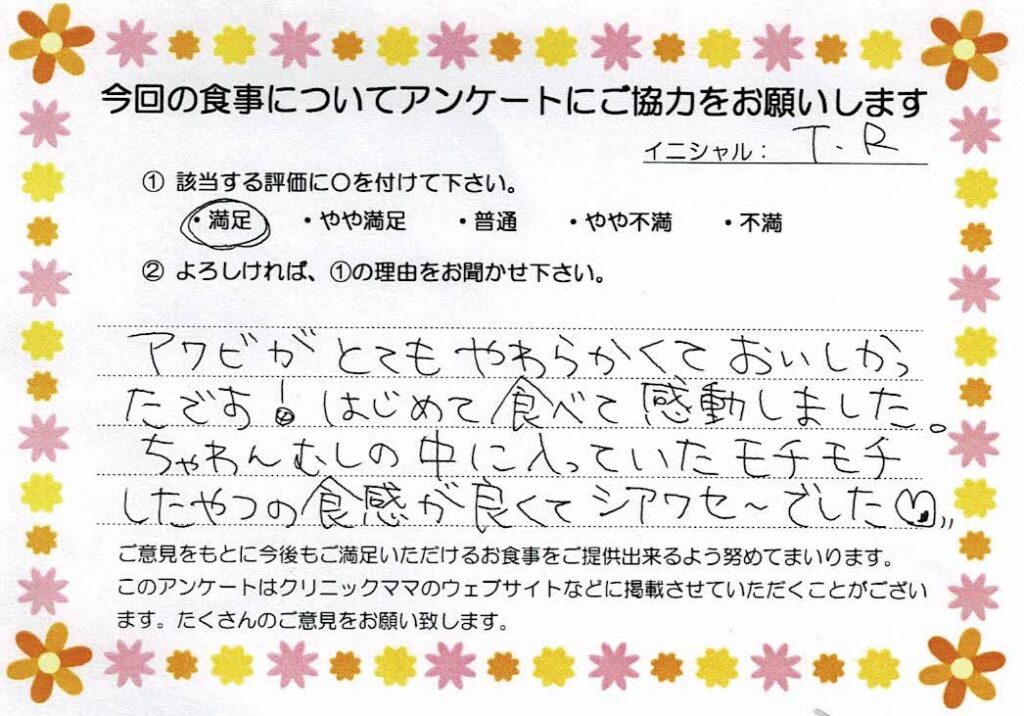 今回の食事についてアンケートにご協力をお願いします
イニシャル： T.R
① 該当する評価に〇を付けて下さい。
・満足 ・やや満足 ・普通 ・やや不満 ・不満
② よろしければ、①の理由をお聞かせ下さい。
アワビがとてもやわらかくておいしかっ
たです! はじめて食べて感動しました。
ちゃわんむしの中に入っていたモチモチ
したやつの食感が良くてシアワセ～でした♡
ご意見をもとに今後もご満足いただけるお食事をご提供出来るよう努めてまいります。
このアンケートはクリニックママのウェブサイトなどに掲載させていただくことがござい
ます。たくさんのご意見をお願い致します。